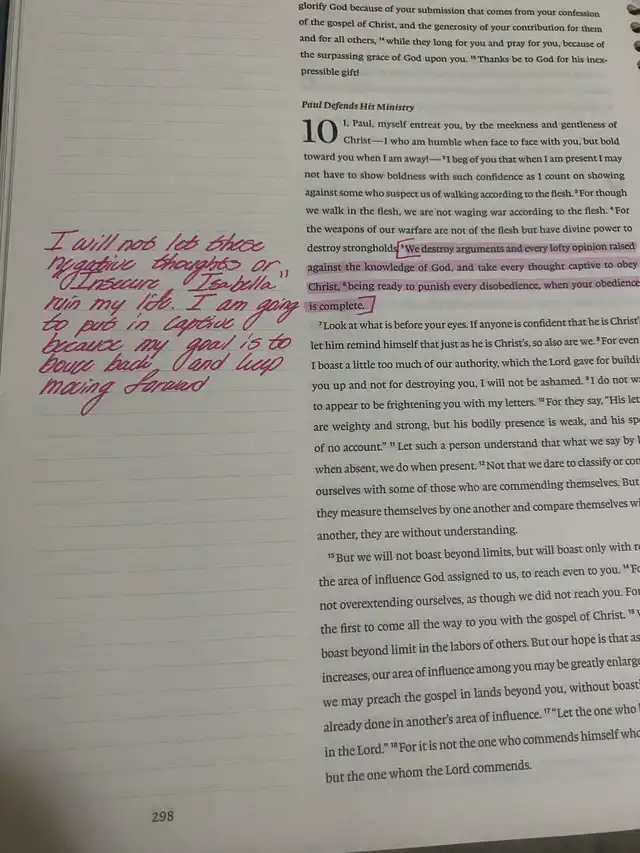 glorify God because of your submission that comes from your confession
of the gospel of Christ, and the generosity of your contribution for them
and for all others, ¹⁴while they long for you and pray for you, because of
the surpassing grace of God upon you. ¹⁵Thanks be to God for his inex-
pressible gift!
Paul Defends His Ministry
10 I, Paul, myself entreat you, by the meekness and gentleness of
Christ—I who am humble when face to face with you, but bold
toward you when I am away!—²I beg of you that when I am present I may
not have to show boldness with such confidence as I count on showing
against some who suspect us of walking according to the flesh. ³For though
we walk in the flesh, we are not waging war according to the flesh. ⁴For
the weapons of our warfare are not of the flesh but have divine power to
destroy strongholds. ⁵We destroy arguments and every lofty opinion raised
against the knowledge of God, and take every thought captive to obey
Christ, ⁶being ready to punish every disobedience, when your obedience
is complete.
⁷Look at what is before your eyes. If anyone is confident that he is Christ'
let him remind himself that just as he is Christ's, so also are we. ⁸For even
I boast a little too much of our authority, which the Lord gave for buildi
you up and not for destroying you, I will not be ashamed. ⁹I do not w
to appear to be frightening you with my letters. ¹⁰For they say, "His let
are weighty and strong, but his bodily presence is weak, and his sp
of no account." ¹¹Let such a person understand that what we say by l
when absent, we do when present. ¹²Not that we dare to classify or com
ourselves with some of those who are commending themselves. But
they measure themselves by one another and compare themselves wi
another, they are without understanding.
¹³But we will not boast beyond limits, but will boast only with r
the area of influence God assigned to us, to reach even to you. ¹⁴Fo
not overextending ourselves, as though we did not reach you. For
the first to come all the way to you with the gospel of Christ. ¹⁵
boast beyond limit in the labors of others. But our hope is that as
increases, our area of influence among you may be greatly enlarge
we may preach the gospel in lands beyond you, without boasti
already done in another's area of influence. ¹⁷"Let the one who
in the Lord." ¹⁸For it is not the one who commends himself who
but the one whom the Lord commends.
I will not let these
negative thoughts or
"Insecure Isabella"
ruin my life. I am going
to put in captive
because my goal is to
bounce back and keep
moving forward
298